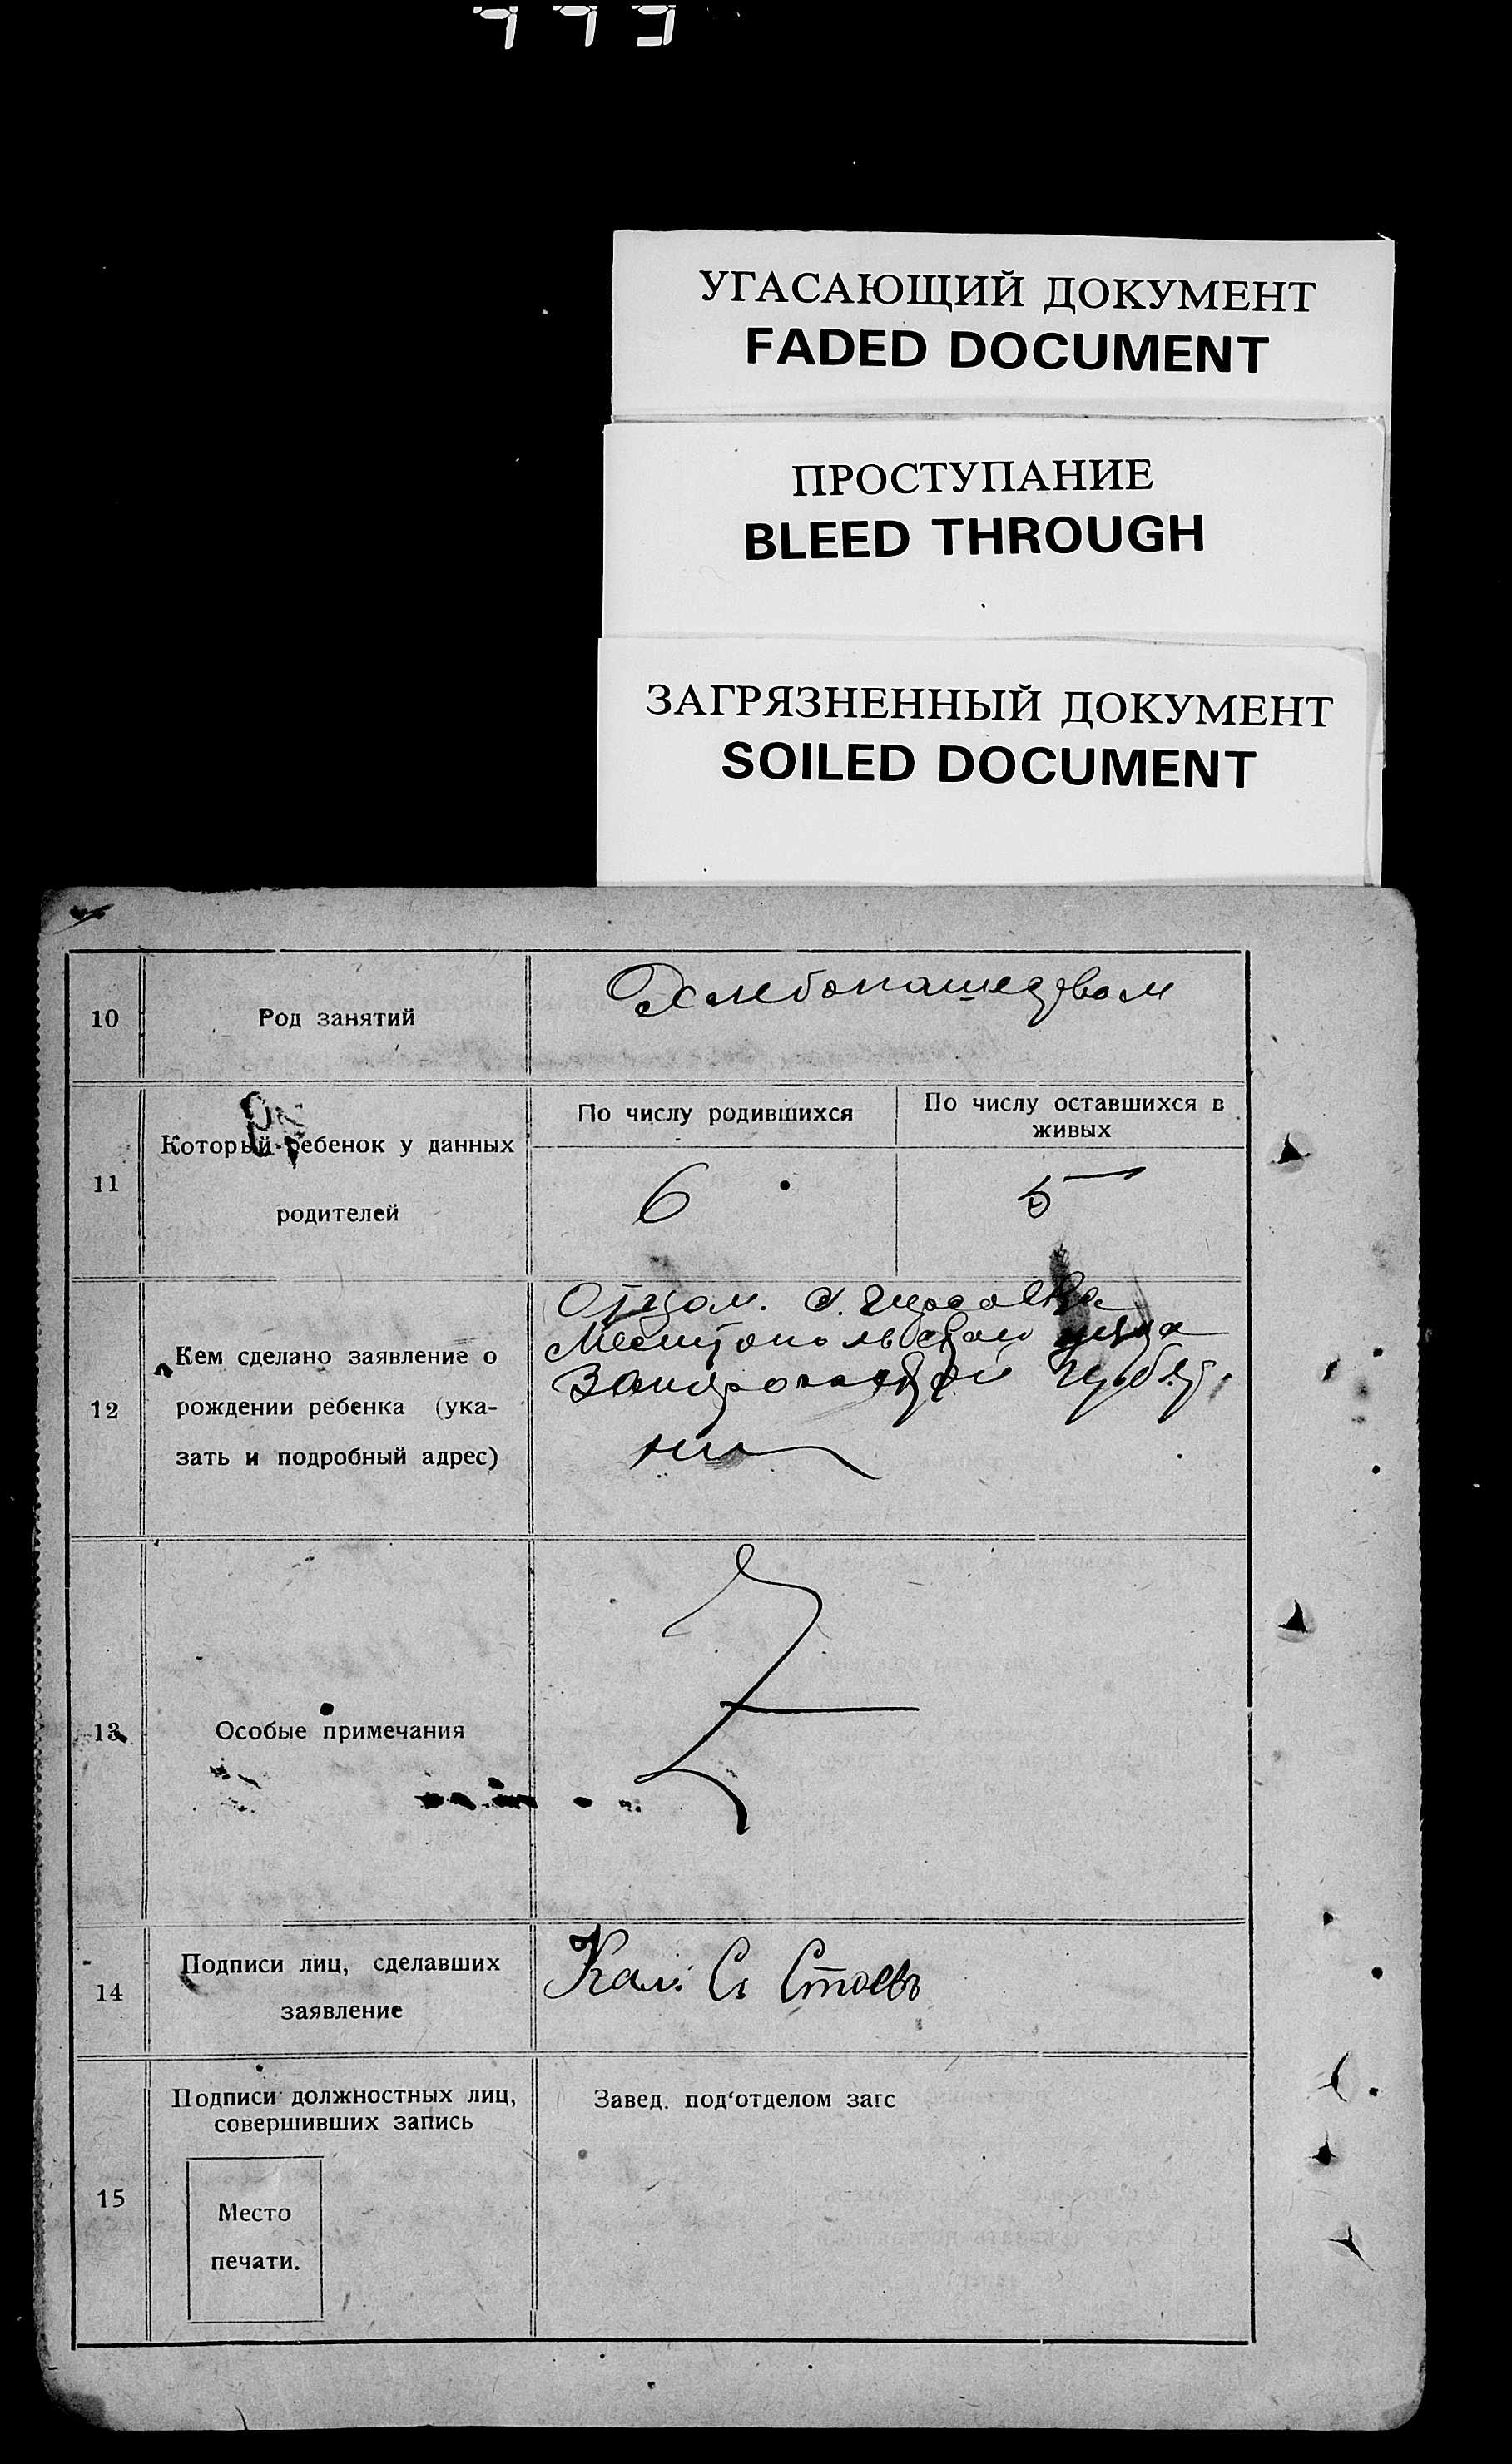 УГАСАЮЩИЙ ДОКУМЕНТ
FADED DOCUMENT
ПРОСТУПАНИЕ
BLEED THROUGH
ЗАГРЯЗНЕННЫЙ ДОКУМЕНТ
SOILED DOCUMENT
10
Род занятий
Хлебопашедвом
11
Который ребенок у данных
родителей
По числу родившихся
По числу оставшихся в
живых
6
5
12
Кем сделано заявление о
рождении ребенка (ука-
зать и подробный адрес)
Отцом. с.
Мелитопольского уезда
Запорожской Губер.
нии
13
Особые примечания
14
Подписи лиц, сделавших
заявление
Стоевъ
15
Подписи должностных лиц,
совершивших запись
Завед. под'отделом загс
Место
печати.